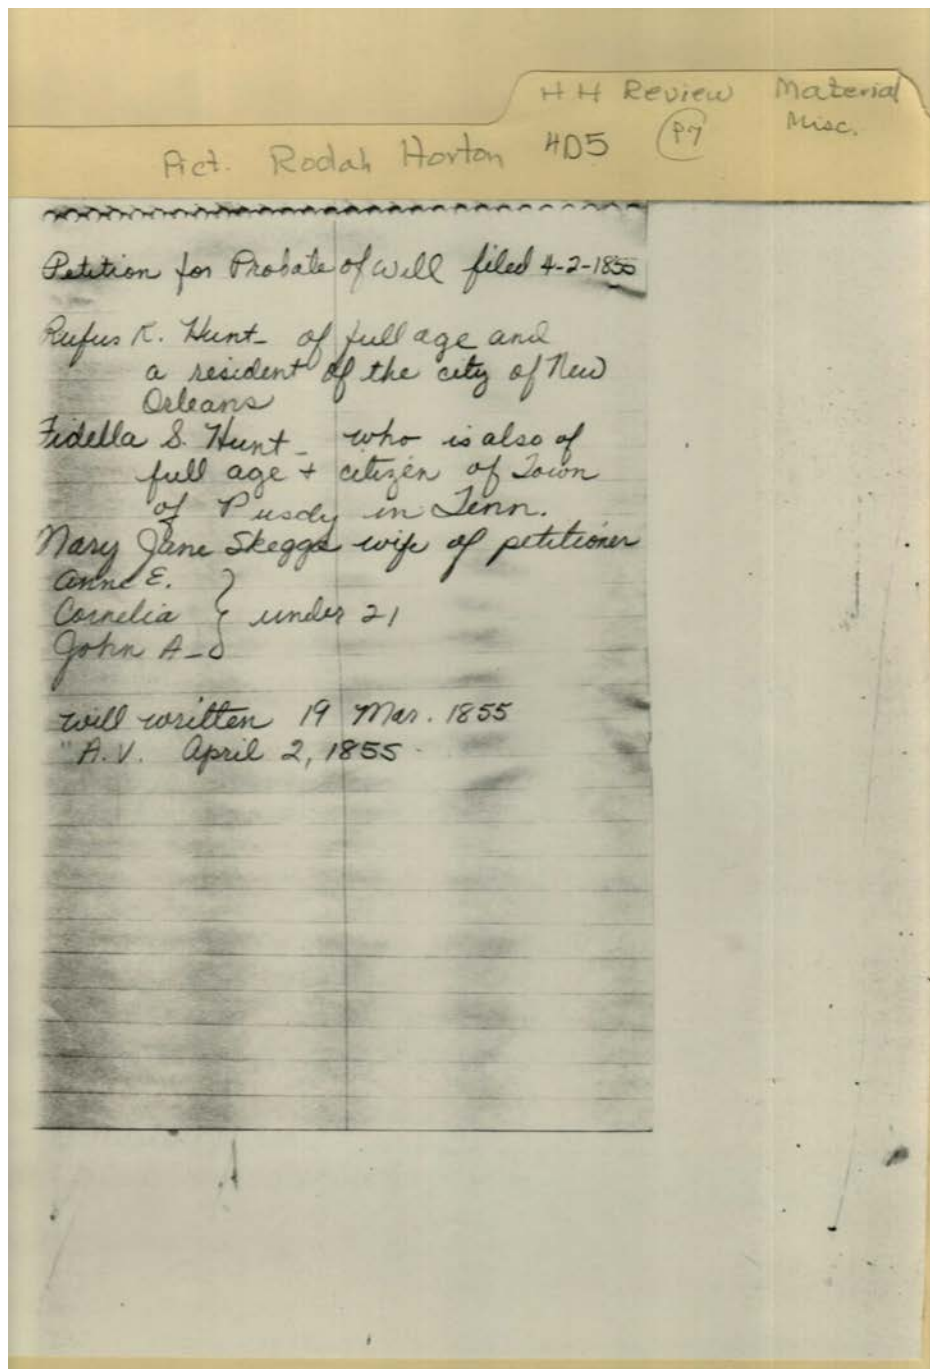 HH Review Material
Misc.
4D5 P7
Pict. Rodah Horton
Petition for Probate of will filed 4-2-1855
Rufus K. Hunt - of full age and
a resident of the city of New
Orleans
Fidella S. Hunt - who is also of
full age + citizen of Town
of Pusdy in Tenn.
Mary Jane Skeggs wife of petitioner
Anne E.
Cornelia } under 21
John A -
will written 19 Mar. 1855
" A.V. April 2, 1855